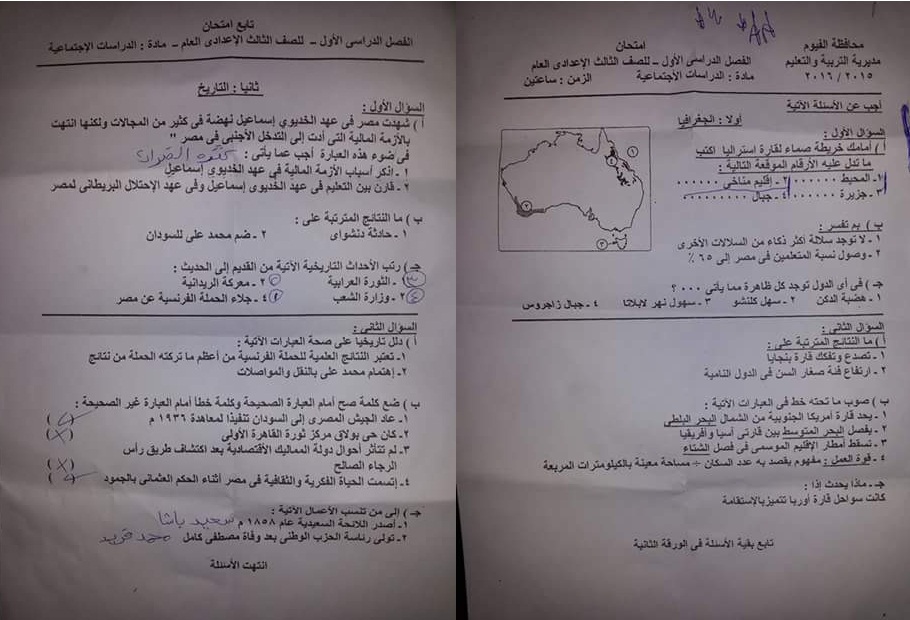 محافظة الفيوم
مديرية التربية والتعليم
٢٠١٥ / ٢٠١٦
امتحان
الفصل الدراسى الأول – للصف الثالث الإعدادى العام
مادة : الدراسات الأجتماعية الزمن : ساعتين
أجب عن الأسئلة الآتية
أولا : الجغرافيا
السؤال الأول :
أ ) أمامك خريطة صماء لقارة استراليا اكتب
ما تدل عليه الأرقام الموقعة التالية :
١- المحيط ....... ٢- إقليم مناخى ......
٣- جزيرة ...... ٤- جبال .........
١
٢
٣
ب ) بم تفسر :
١ - لا توجد سلالة أكثر ذكاء من السلالات الأخرى
٢ - وصول نسبة المتعلمين فى مصر إلى ٦٥ ٪
جـ ) فى أى الدول توجد كل ظاهرة مما يأتى ٠٠٠ ؟
١ - هضبة الدكن ٢ - سهل كلنشو ٣ - سهول نهر لابلاتا ٤ - جبال زاجروس
السؤال الثانى :
أ ) ما النتائج المترتبة على :
١ - تصدع وتفكك قارة بنجايا
٢ - ارتفاع فئة صغار السن فى الدول النامية
ب ) صوب ما تحته خط فى العبارات الآتية :
١ - يحد قارة أمريكا الجنوبية من الشمال البحر البلطى
٢ - يفصل البحر المتوسط بين قارتى أسيا وأفريقيا
٣ - تسقط أمطار الإقليم الموسمى فى فصل الشتاء
٤ - قوة العمل : مفهوم يقصد به عدد السكان ÷ مساحة معينة بالكيلومترات المربعة
جـ - ماذا يحدث إذا :
كانت سواحل قارة أوربا تتميزبالإستقامة
تابع بقية الأسئلة فى الورقة الثانية
تابع امتحان
الفصل الدراسى الأول – للصف الثالث الإعدادى العام – مادة : الدراسات الإجتماعية
ثانيا : التاريخ
السؤال الأول :
أ ) شهدت مصر فى عهد الخديوي إسماعيل نهضة فى كثير من المجالات ولكنها انتهت
بالأزمة المالية التى أدت إلى التدخل الأجنبى فى مصر "
فى ضوء هذه العبارة أجب عما يأتى : كثرة
١ - اذكر أسباب الأزمة المالية فى عهد الخديوى إسماعيل
٢ - قارن بين التعليم فى عهد الخديوى إسماعيل وفى عهد الإحتلال البريطانى لمصر
ب ) ما النتائج المترتبة على :
١ - حادثة دنشواى ٢ - ضم محمد على للسودان
جـ ) رتب الأحداث التاريخية الآتية من القديم إلى الحديث :
١ - الثورة العرابية ٢ - معركة الريدانية
٢ - وزارة الشعب ٤ - جلاء الحملة الفرنسية عن مصر
السؤال الثانى :
أ ) دلل تاريخيا على صحة العبارات الآتية :
١ - تعتبر النتائج العلمية للحملة الفرنسية من أعظم ما تركته الحملة من نتائج
٢ - إهتمام محمد على بالنقل والمواصلات
ب ) ضع كلمة صح أمام العبارة الصحيحة وكلمة خطأ أمام العبارة غير الصحيحة :
١ - عاد الجيش المصرى إلى السودان تنفيذا لمعاهدة ١٩٣٦ م (✓)
٢ - كان حى بولاق مركز ثورة القاهرة الأولى (X)
٣ - لم تتأثر أحوال دولة المماليك الأقتصادية بعد اكتشاف طريق رأس
الرجاء الصالح (X)
٤ - إتسمت الحياة الفكرية والثقافية فى مصر أثناء الحكم العثمانى بالجمود (✓)
جـ ) إلى من تنسب الأعمال الآتية :
١ - أصدر اللائحة السعيدية عام ١٨٥٨ م سعيد باشا
٢ - تولى رئاسة الحزب الوطنى بعد وفاة مصطفى كامل محمد فريد
انتهت الأسئلة